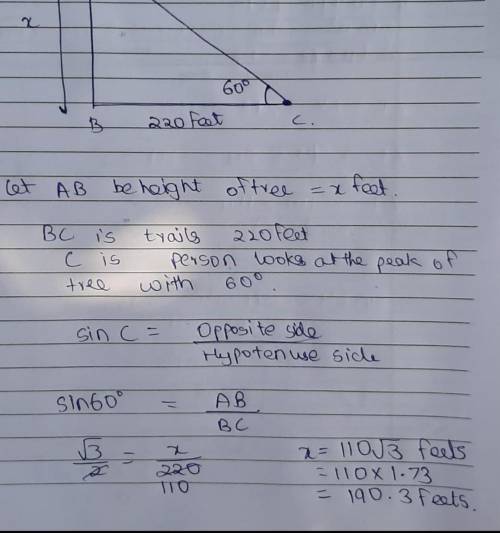 x
60°
B 220 feet C.
Let AB be height of tree = x feet.
BC is trails 220 feet
C is person looks at the peak of
tree with 60°.
sin C = Opposite side
Hypotenuse side
sin60° = AB
BC
√3 = x x = 110√3 feets
2 220 = 110 x 1.73
110 = 190.3 feets.